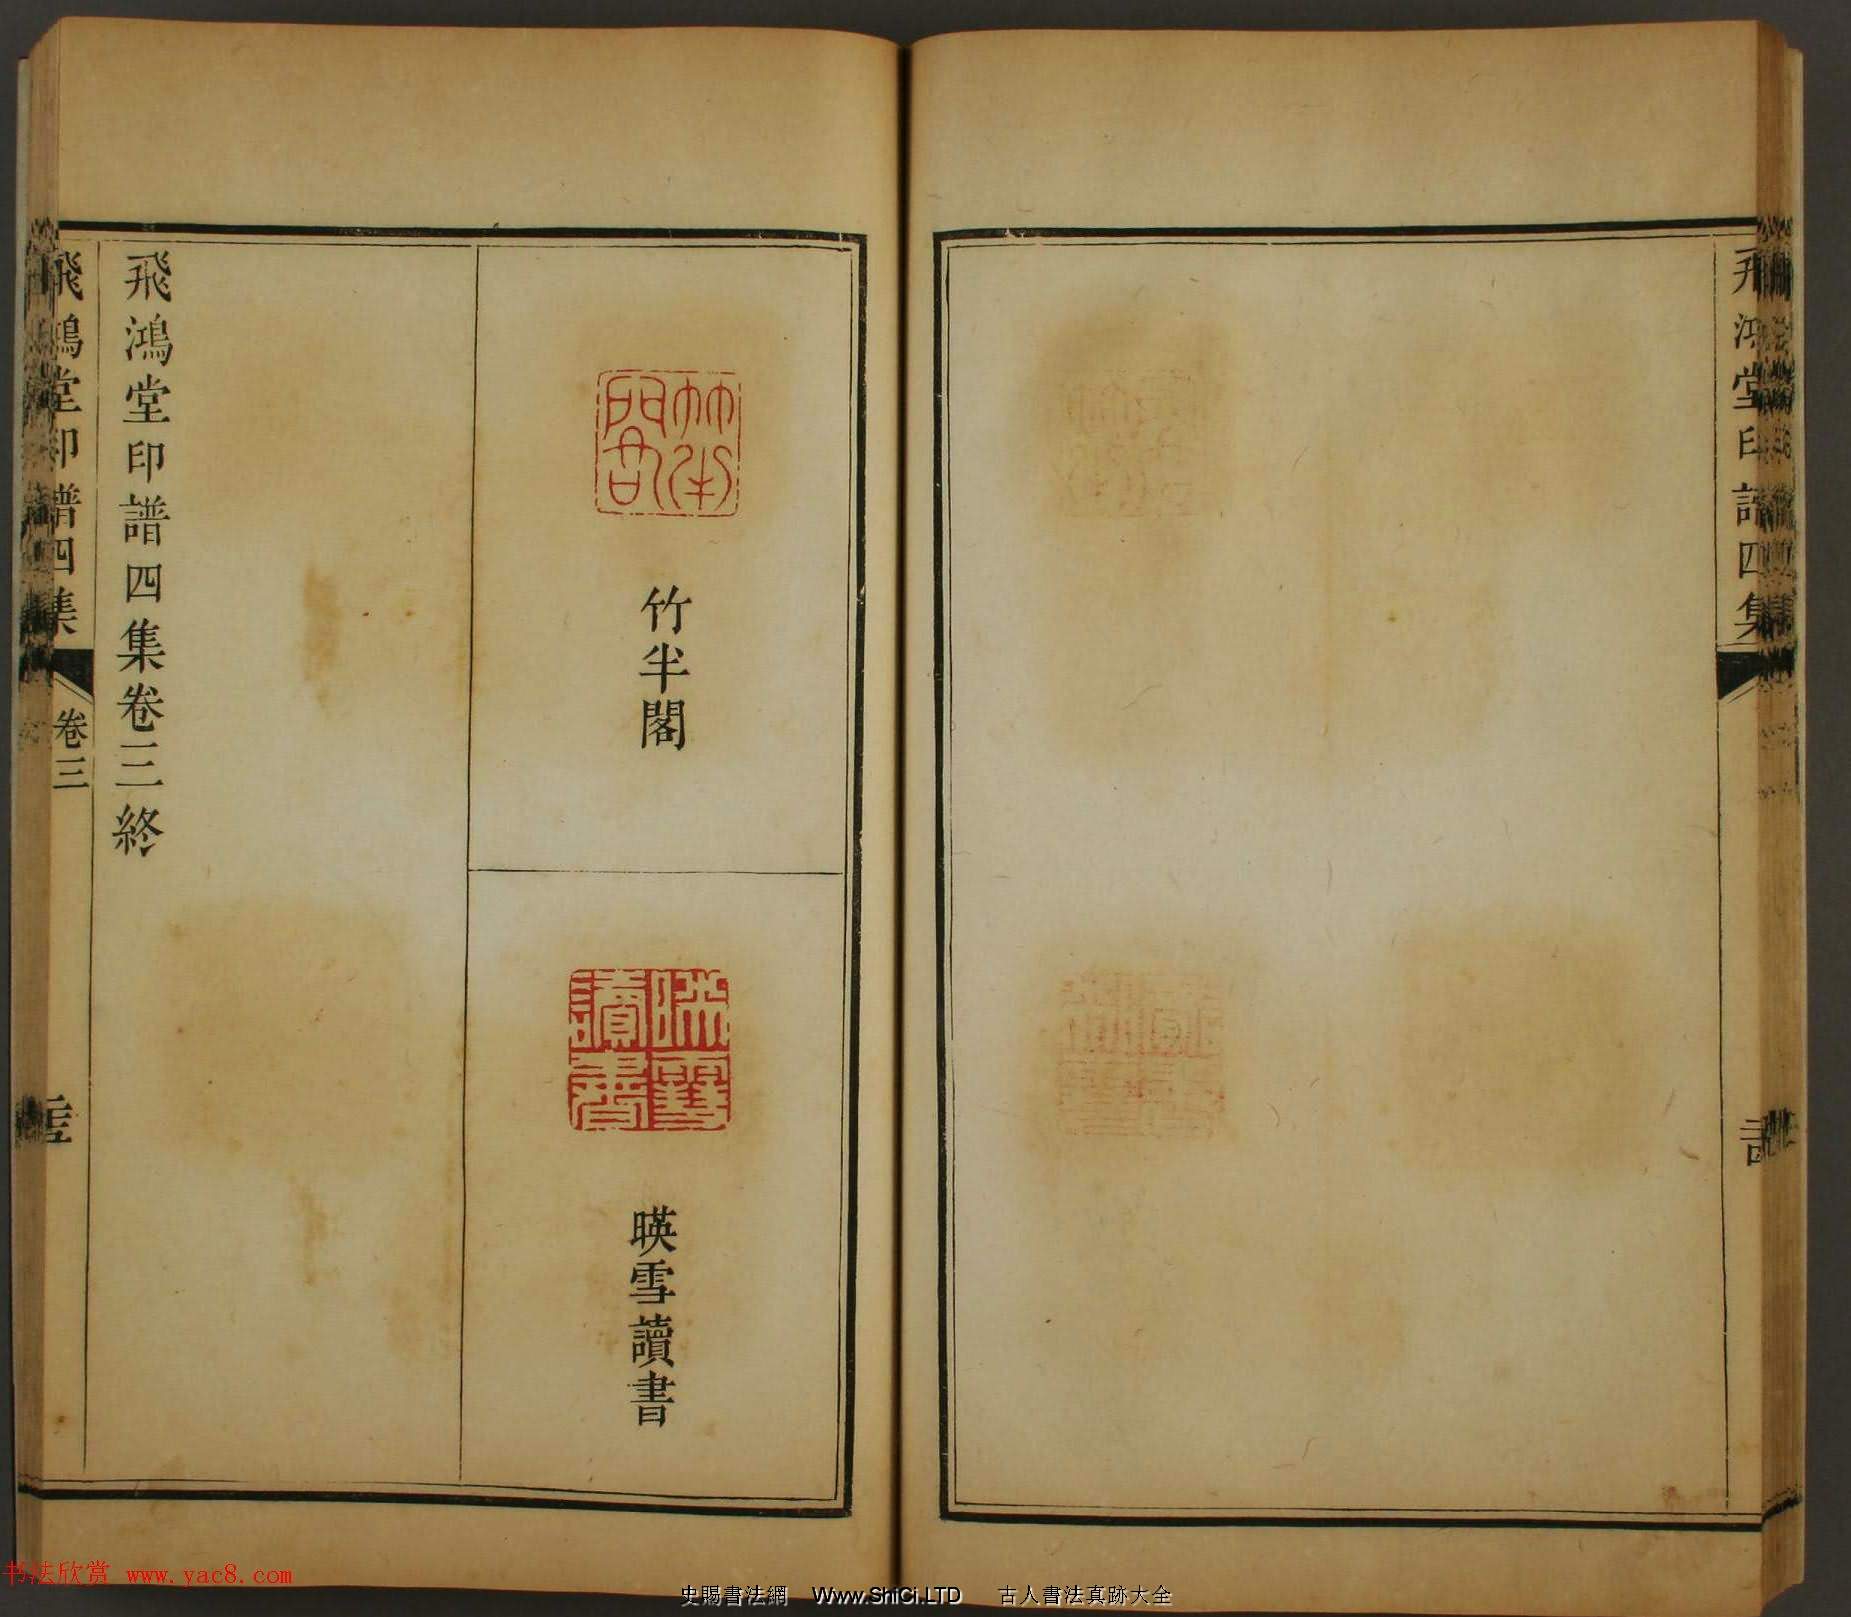 飛鴻堂印譜四集
竹半閣
竹半閣
暎雪讀書
暎雪讀書
飛鴻堂印譜四集卷三終
飛鴻堂印譜四集
卷三
书法欣赏 www.yac8.com
史賜書法網 Www.ShiCi.LTD 古人書法真跡大全